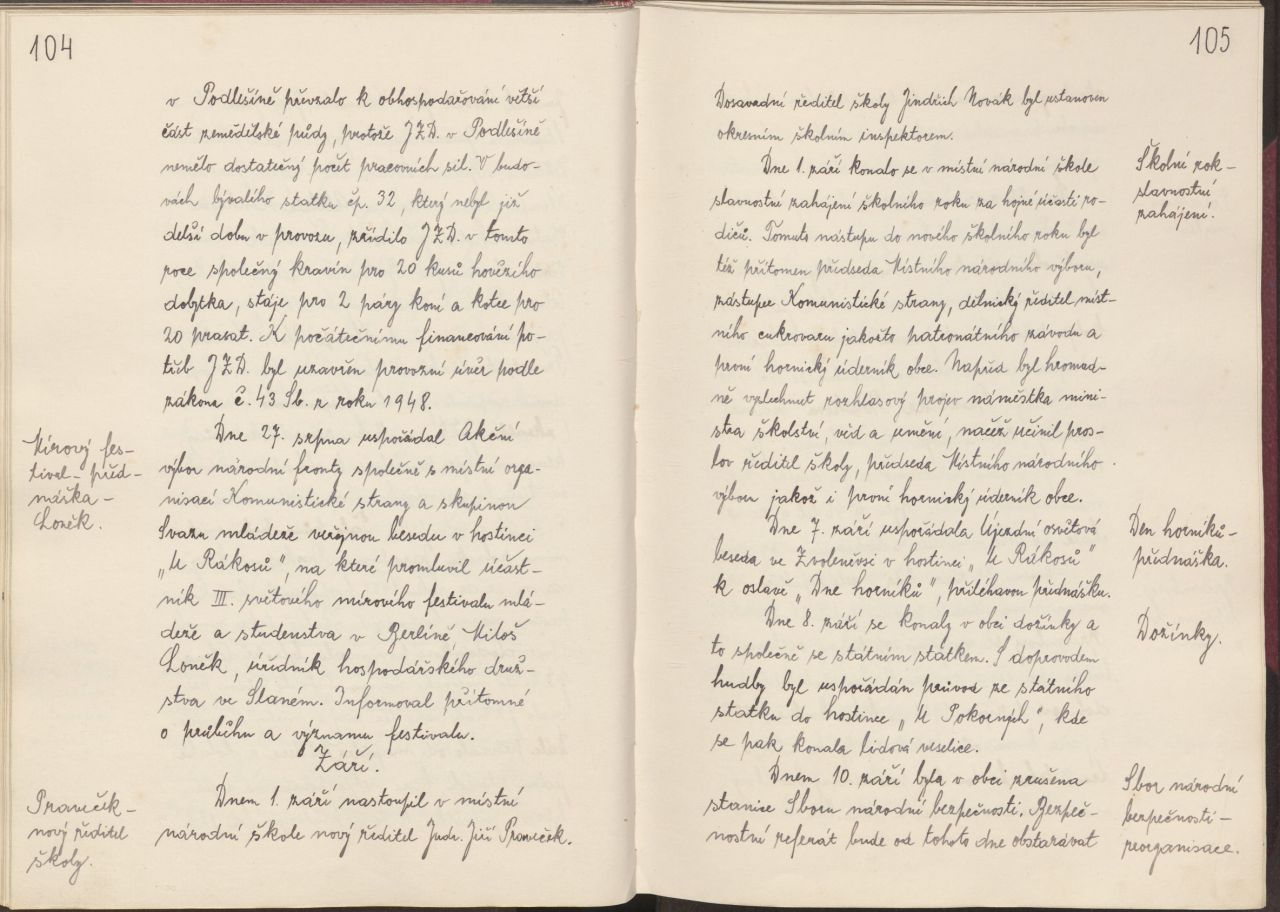 104
v Podlešíně převzalo k obhospodařování větší
část zemědělské půdy, protože J.Z.D. v Podlešíně
nemělo dostatečný počet pracovních sil. V budo-
vách bývalého statku čp. 32, který nebyl již
delší dobu v provozu, zřídilo J.Z.D. v tomto
roce společný kravín pro 20 kusů hovězího
dobytka, stáje pro 2 páry koní a kotce pro
20 prasat. K počátečnímu financování po-
třeb J.Z.D. byl uzavřen provozní úvěr podle
zákona č. 43 Sb. z roku 1948.
Mírový fes-
tival - před-
náška -
Loněk.
Dne 27. srpna uspořádal Akční
výbor národní fronty společně s místní orga-
nisací Komunistické strany a skupinou
Svazu mládeže veřejnou besedu v hostinci
„U Rákosů", na které promluvil účast-
ník III. světového mírového festivalu mlá-
deže a studenstva v Berlíně, Miloš
Loněk, úředník hospodářského druž-
stva ve Slaném. Informoval přítomné
o průběhu a významu festivalu.
Září.
Praveček -
nový ředitel
školy.
Dnem 1. září nastoupil v místní
národní škole nový ředitel Judr. Jiří Praveček.
105
Dosavadní ředitel školy Jindřich Novák byl ustanoven
okresním školním inspektorem.
Školní rok -
slavnostní
zahájení.
Dne 1. září konalo se v místní národní škole
slavnostní zahájení školního roku za hojné účasti ro-
dičů. Tomuto nástupu do nového školního roku byl
též přítomen předseda Místního národního výboru,
zástupce Komunistické strany, dělnický ředitel míst-
ního cukrovaru jakožto patronátního závodu a
první hornický úderník obce. Napřed byl hromad-
ně vyslechnut rozhlasový projev náměstka mini-
stra školství, věd a umění, načež učinil pros-
lov ředitel školy, předseda Místního národního
výboru jakož i první hornický úderník obce.
Den horníků -
přednáška.
Dne 7. září uspořádala Újezdní osvětová
beseda ve Zvoleněvsi v hostinci „U Rákosů"
k oslavě „Dne horníků", přiléhavou přednášku.
Dožínky.
Dne 8. září se konaly v obci dožínky a
to společně se státním statkem. S doprovodem
hudby byl uspořádán průvod ze státního
statku do hostince „U Pokorných", kde
se pak konala lidová veselice.
Sbor národní
bezpečnosti -
reorganisace.
Dnem 10. září byla v obci zrušena
stanice Sboru národní bezpečnosti. Bezpeč-
nostní referát bude od tohoto dne obstarávat